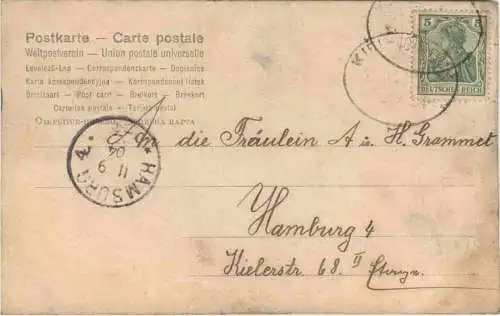 Postkarte — Carte postale
Weltpostverein — Union postale universelle
Levelező-Lap — Correspondenzkarte — Dopisnice
Karta korespondencyjna — Korespondenčni listek
Brevkaart — Post card — Brefkort — Brevkort
Cartolina postale — Tarjeta postal
5 5
DEUTSCHES REICH
HAMBURG 4
11 9
04
An die Fräulein A u. H. Grammet
Hamburg 4
Kielerstr. 68. II Etage